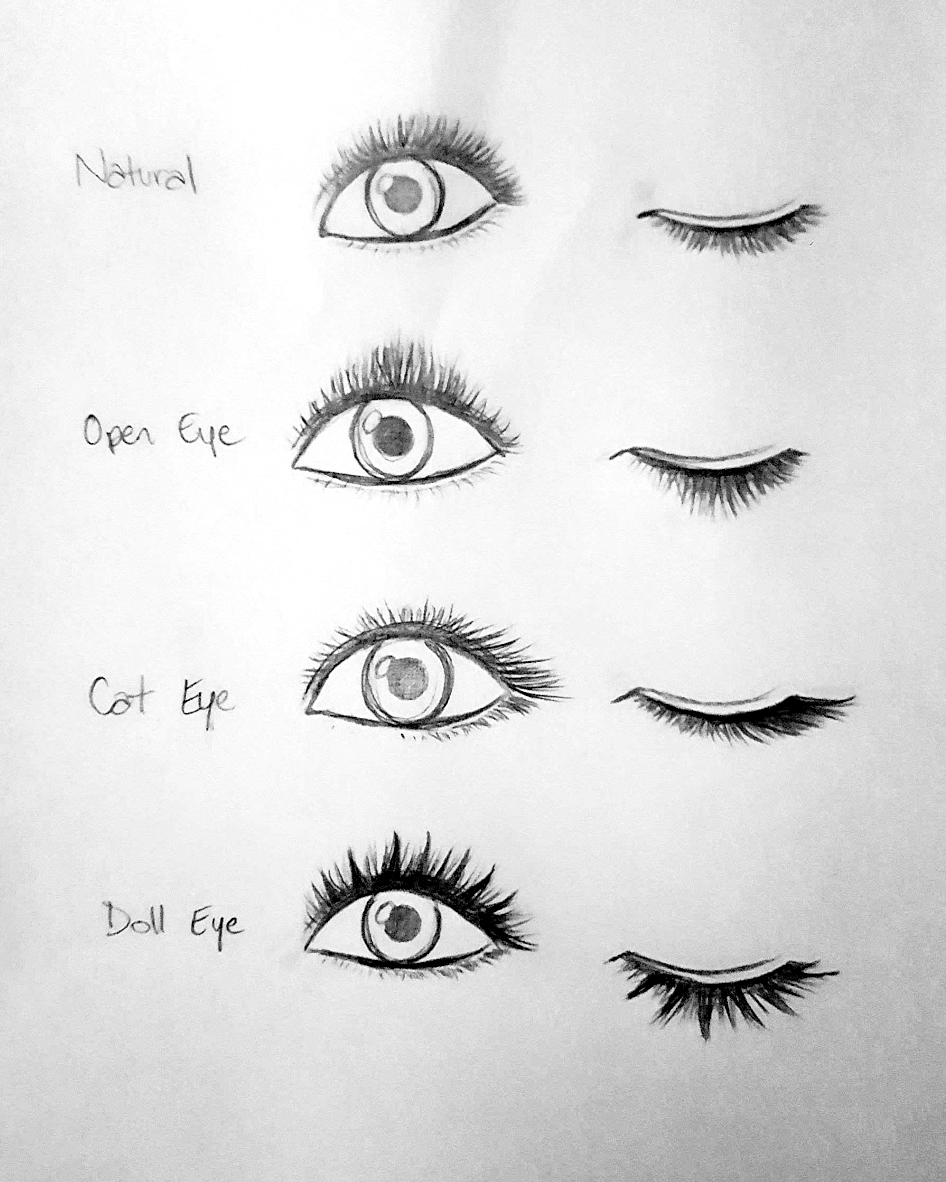 Natural
Open Eye
Cat Eye
Doll Eye